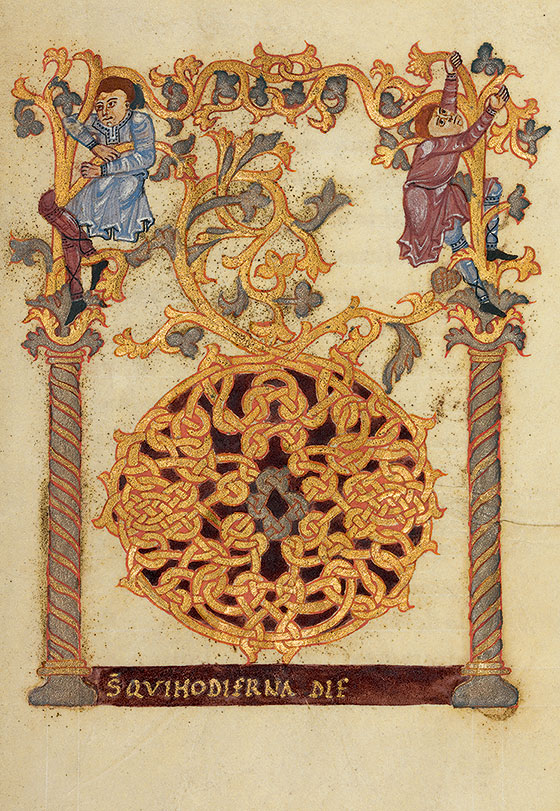 DS̄ QVIHODIERNA DIE